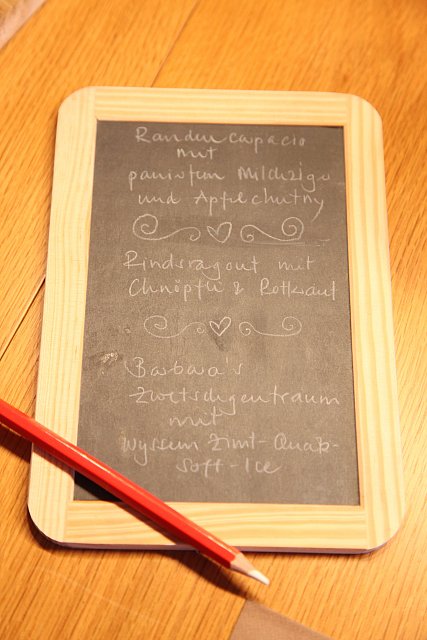 Randencarpacio
mit
paniertem Milchzigu
und Apfelchutny
Rindsragout mit
Chnöpfli & Rotkraut
Barbara's
Zwetschgentraum
mit
wyssem Zimt-Quark-
Soft-Ice